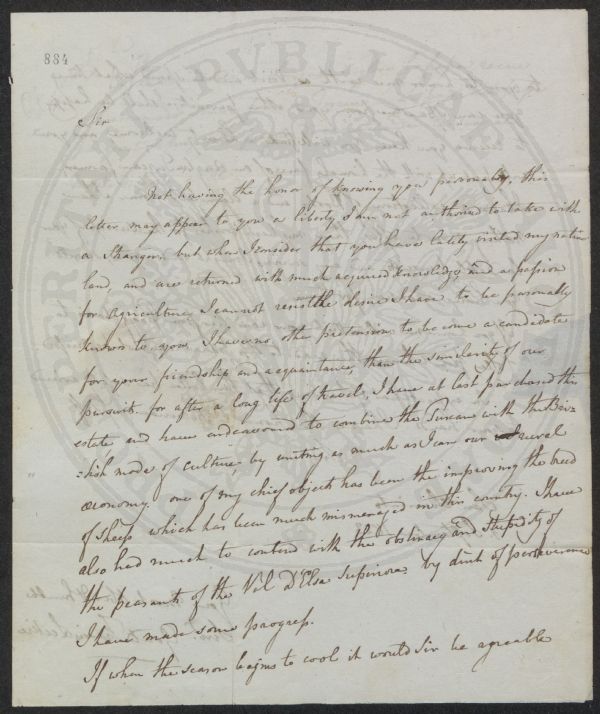 884
Sir
Not having the honor of knowing you personally, this
letter may appear to you a liberty I am not authorised to take with
a Stranger, but when I consider that you have lately visited my native
land, and are returned with much acquired knowledge and a passion
for agriculture, I cannot resist the desire I have to be personally
known to you. I have no other pretensions to become a candidate
for your friendship and acquaintance, than the similarity of our
pursuits. for after a long life of travel, I have at last purchased this
estate and have endeavoured to combine the Tuscan with the Brit=
=tish mode of culture by uniting as much as I can our rural
œconomy. one of my chief objects has been the improving the breed
of Sheep which has been much mismanaged in this country. I have
also had much to contend with the obstinacy and stupidity of
the peasants of the Val D'Elsa Superiore by dint of perseverance
I have made some progress.
If when the season begins to cool it would Sir be agreable